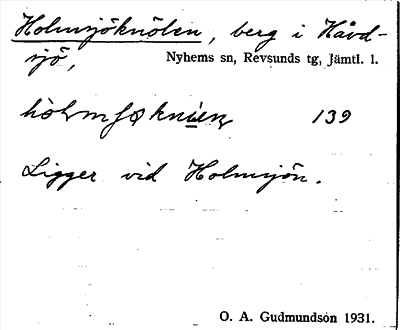 Holmsjöknölen, berg i Håvd-
sjö,
Nyhems sn, Revsunds tg, Jämtl. l.
139
Ligger vid Holmsjön.
O. A. Gudmundson 1931.